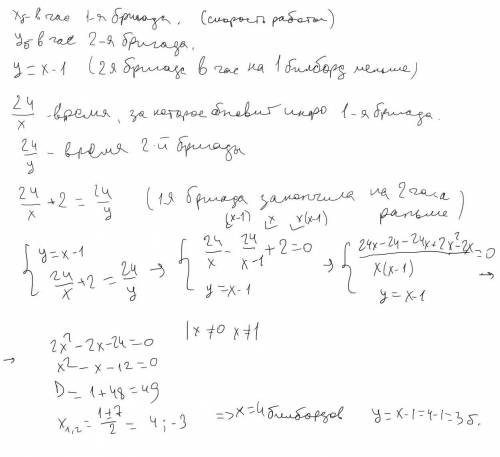 xб в час 1-я бригада. (скорость работы)
yб в час 2-я бригада.
y = x-1 (2я бригада в час на 1 билборд меньше)
24/x - время, за которое обновит инфо 1-я бригада.
24/y - время 2-й бригады
24/x + 2 = 24/y (1я бригада закончила на 2 часа раньше)
{ y = x-1 ; 24/x + 2 = 24/y → { 24/x (x-1) - 24/(x-1) x + 2 x(x-1) = 0 ; y = x-1 → { (24x-24-24x+2x²-2x)/(x(x-1)) = 0 ; y = x-1 →
→ 2x²-2x-24=0 | x≠0 x≠1
x²-x-12=0
D = 1+48=49
x1,2 = (1±7)/2 = 4; -3 => x=4 билбордов y=x-1=4-1=3 б.